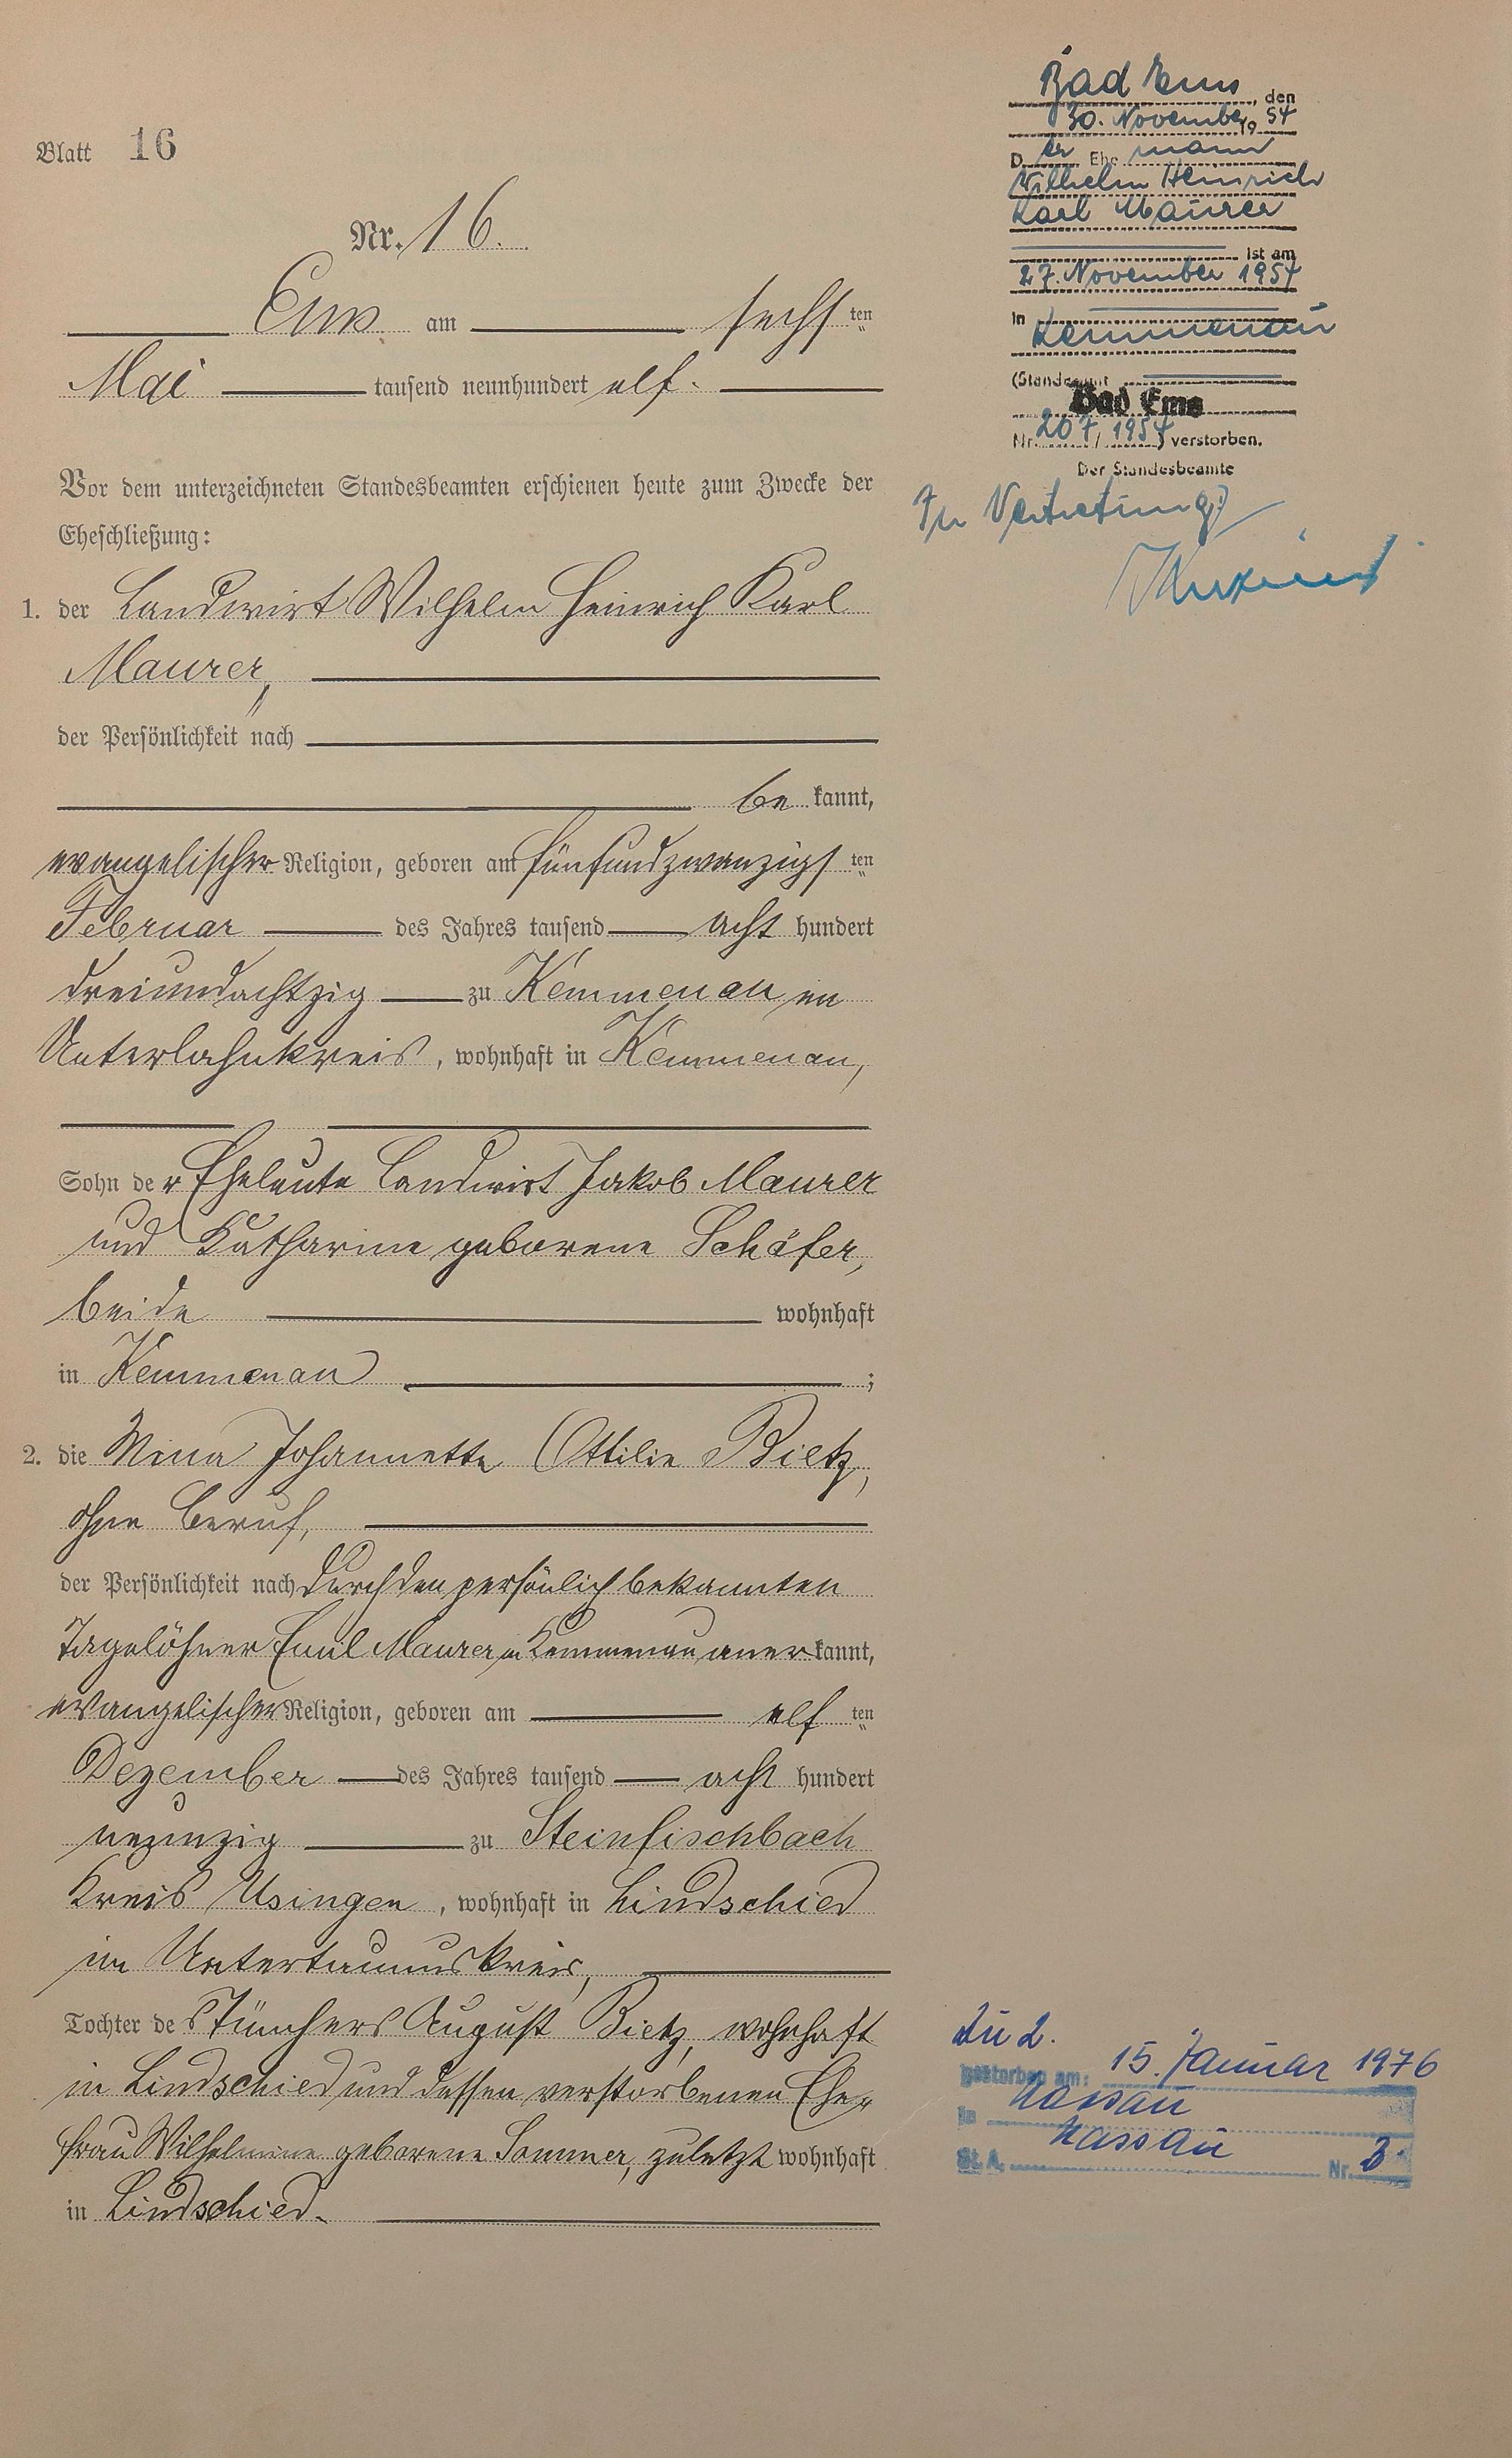 Blatt 16
Nr. 16.
Ems am sechsten
Mai tausend neunhundert elf.
Vor dem unterzeichneten Standesbeamten erschienen heute zum Zwecke der
Eheschließung:
1. der Landwirt Wilhelm Heinrich Karl
Maurer,
der Persönlichkeit nach
be kannt,
evangelischer Religion, geboren am fünfundzwanzigsten
Februar des Jahres tausend acht hundert
dreiundachtzig zu Kemmenau im
Unterlahnkreis, wohnhaft in Kemmenau,
Sohn der Eheleute Landwirt Jakob Maurer
und Katharine geborene Schäfer,
beide wohnhaft
in Kemmenau ;
2. die Mina Johannette Ottilie Bietz,
ohne Beruf,
der Persönlichkeit nach durch den persönlich bekannten
Tagelöhner Emil Maurer in Kemmenau anerkannt,
evangelischer Religion, geboren am elften
Dezember des Jahres tausend acht hundert
neunzig zu Steinfischbach
Kreis Usingen, wohnhaft in Lindschied
im Untertaunuskreis,
Tochter des Tünchers August Bietz, wohnhaft
in Lindschied und dessen verstorbenen Ehe-
frau Wilhelmine geborene Sommer, zuletzt wohnhaft
in Lindschied.
Bad Ems, den
30. November 1954
Der Ehemann
Wilhelm Heinrich
Karl Maurer
ist am
27. November 1954
in Kemmenau
(Standesamt
Bad Ems
Nr. 207/1954) verstorben.
Der Standesbeamte
In Vertretung:
Zu 2.
gestorben am: 15. Januar 1976
in Nassau
St. A. Nassau Nr. 3